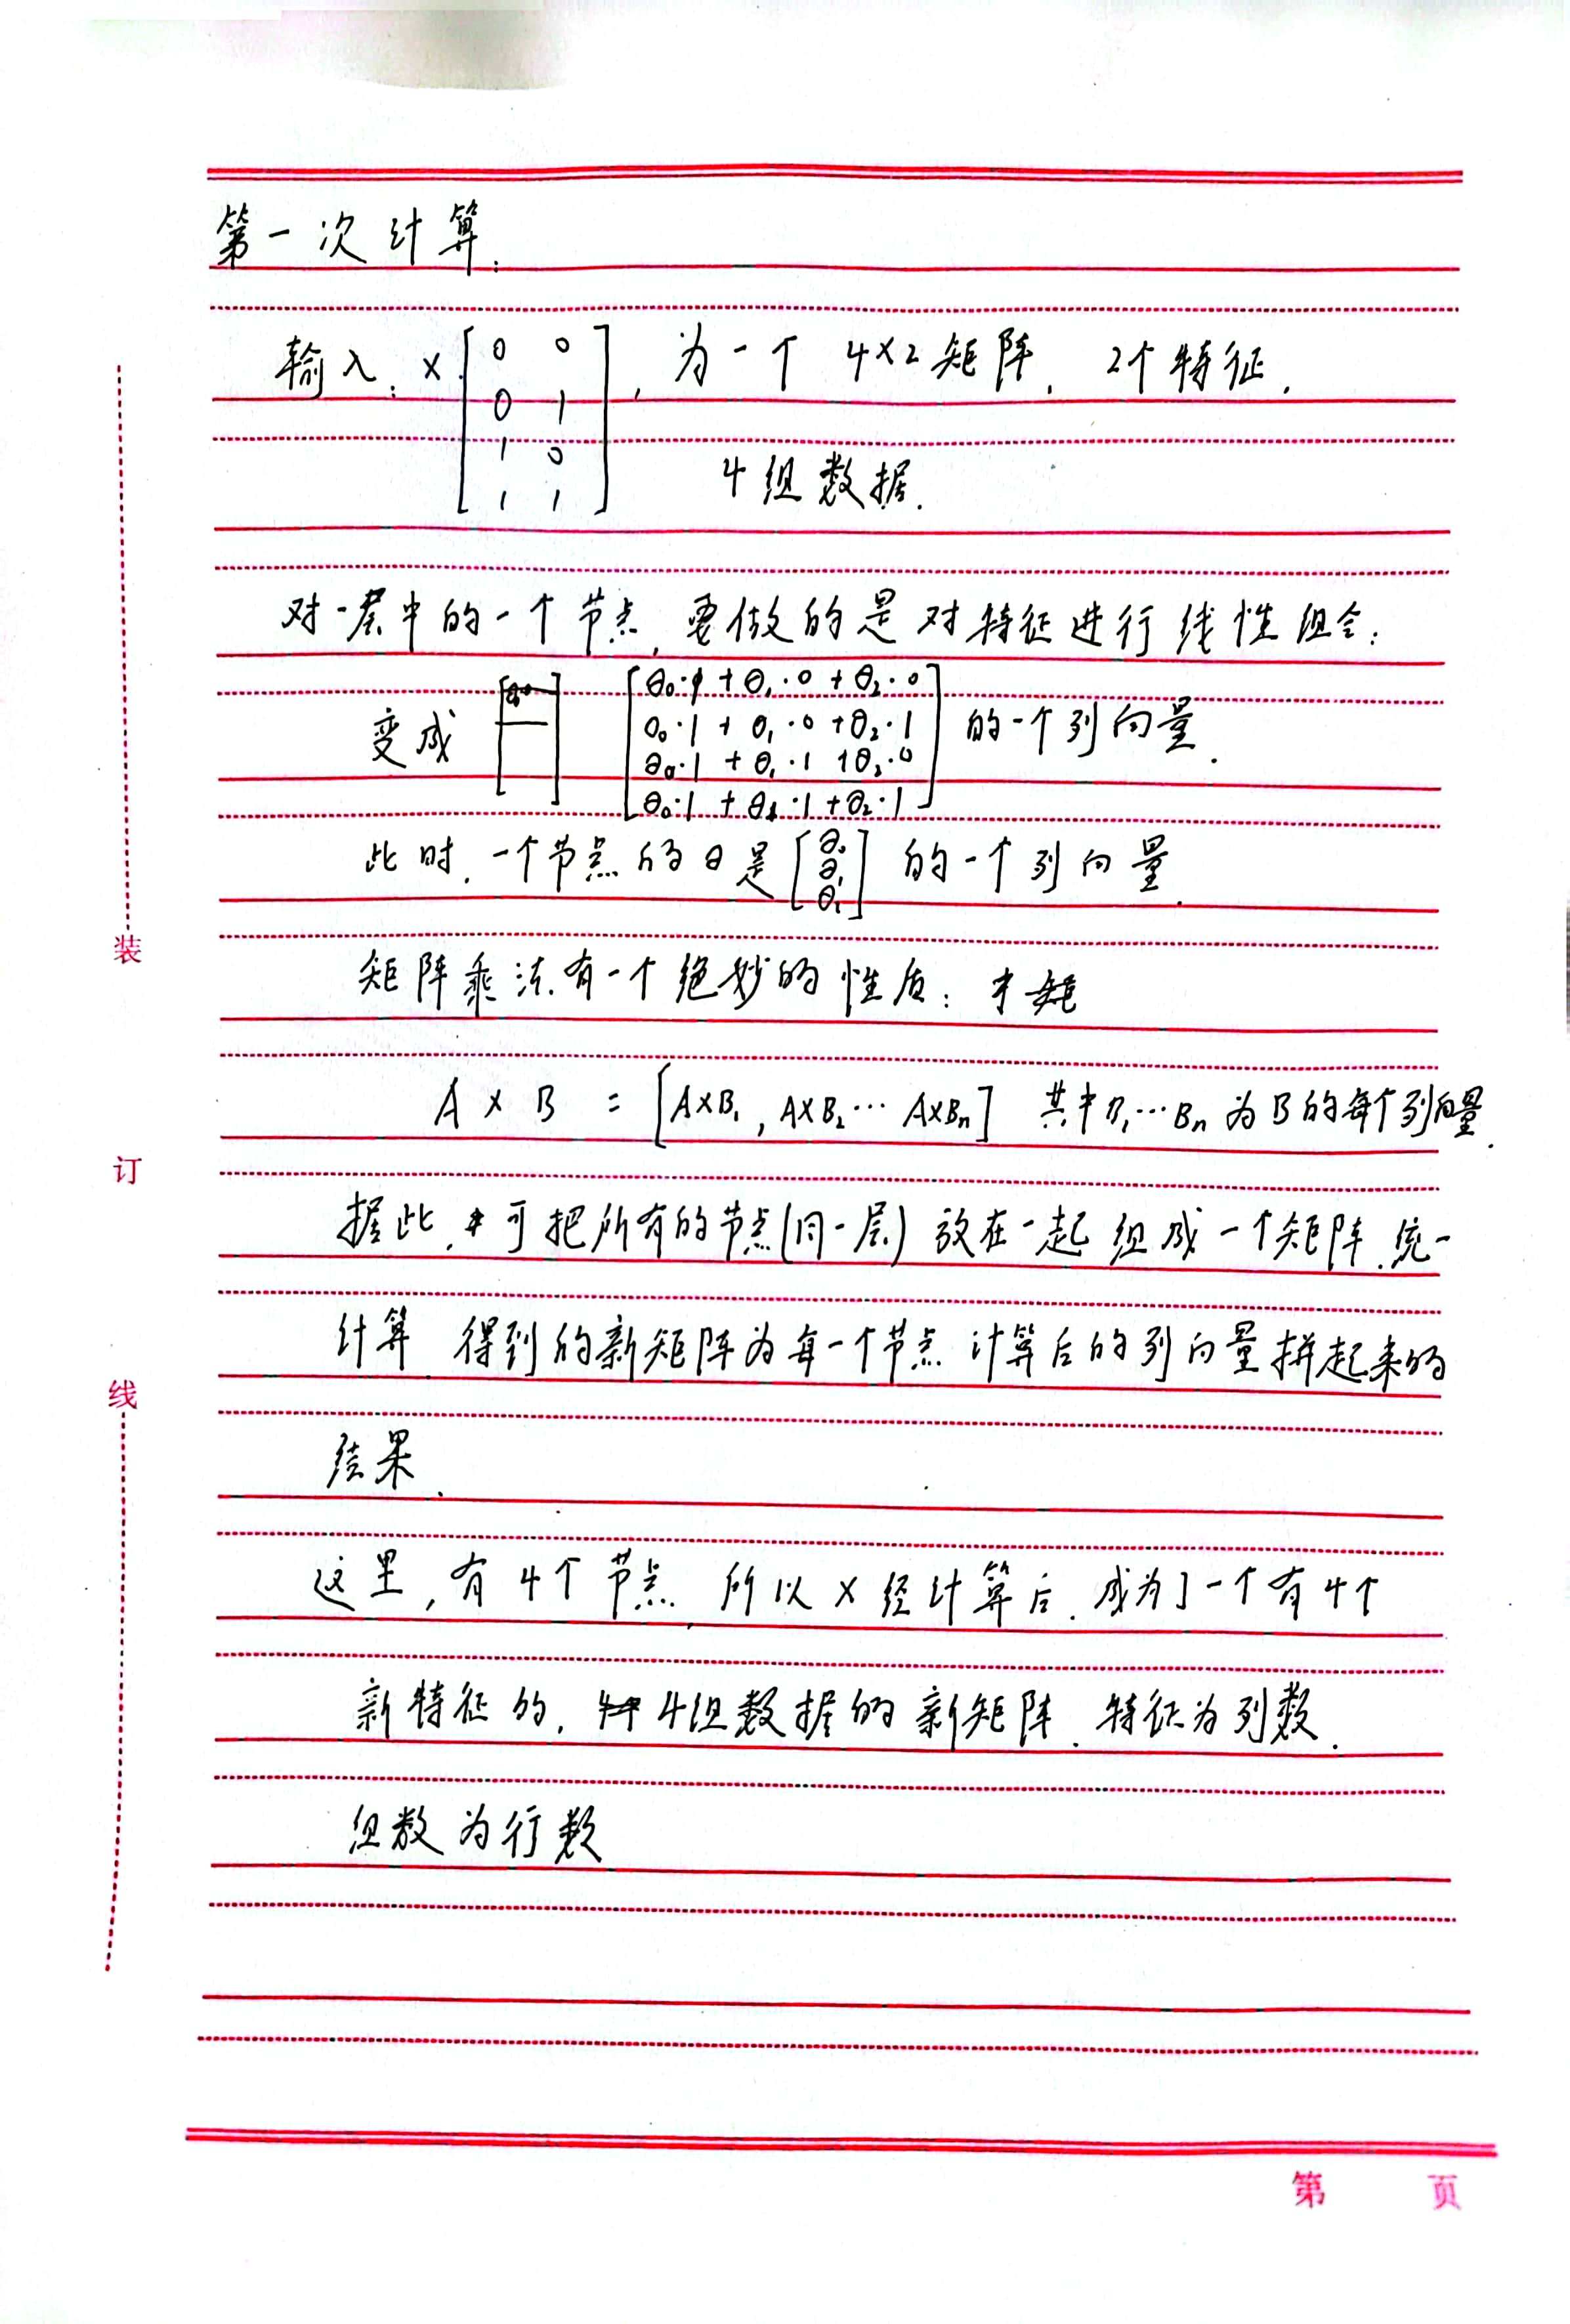 第一次计算:
输入: X [0 0; 0 1; 1 0; 1 1], 为一个 4×2 矩阵, 2个特征,
4组数据.
对一层中的一个节点, 要做的是对特征进行线性组合:
变成 [θ₀·1 + θ₁·0 + θ₂·0; θ₀·1 + θ₁·0 + θ₂·1; θ₀·1 + θ₁·1 + θ₂·0; θ₀·1 + θ₁·1 + θ₂·1] 的一个列向量.
此时, 一个节点的θ是 [θ₀ θ₁ θ₂] 的一个列向量.
矩阵乘法有一个绝妙的性质:
A × B = [A×B₁, A×B₂ ⋯ A×Bₙ] 其中B₁⋯Bₙ 为B的每个列向量.
据此, 可把所有的节点(同一层) 放在一起组成一个矩阵, 统一
计算 得到的新矩阵为每一个节点计算后的列向量拼起来的
结果.
这里, 有4个节点, 所以X经计算后, 成为了一个有4个
新特征的, 4组数据的新矩阵. 特征为列数.
组数为行数
装
订
线
第 页